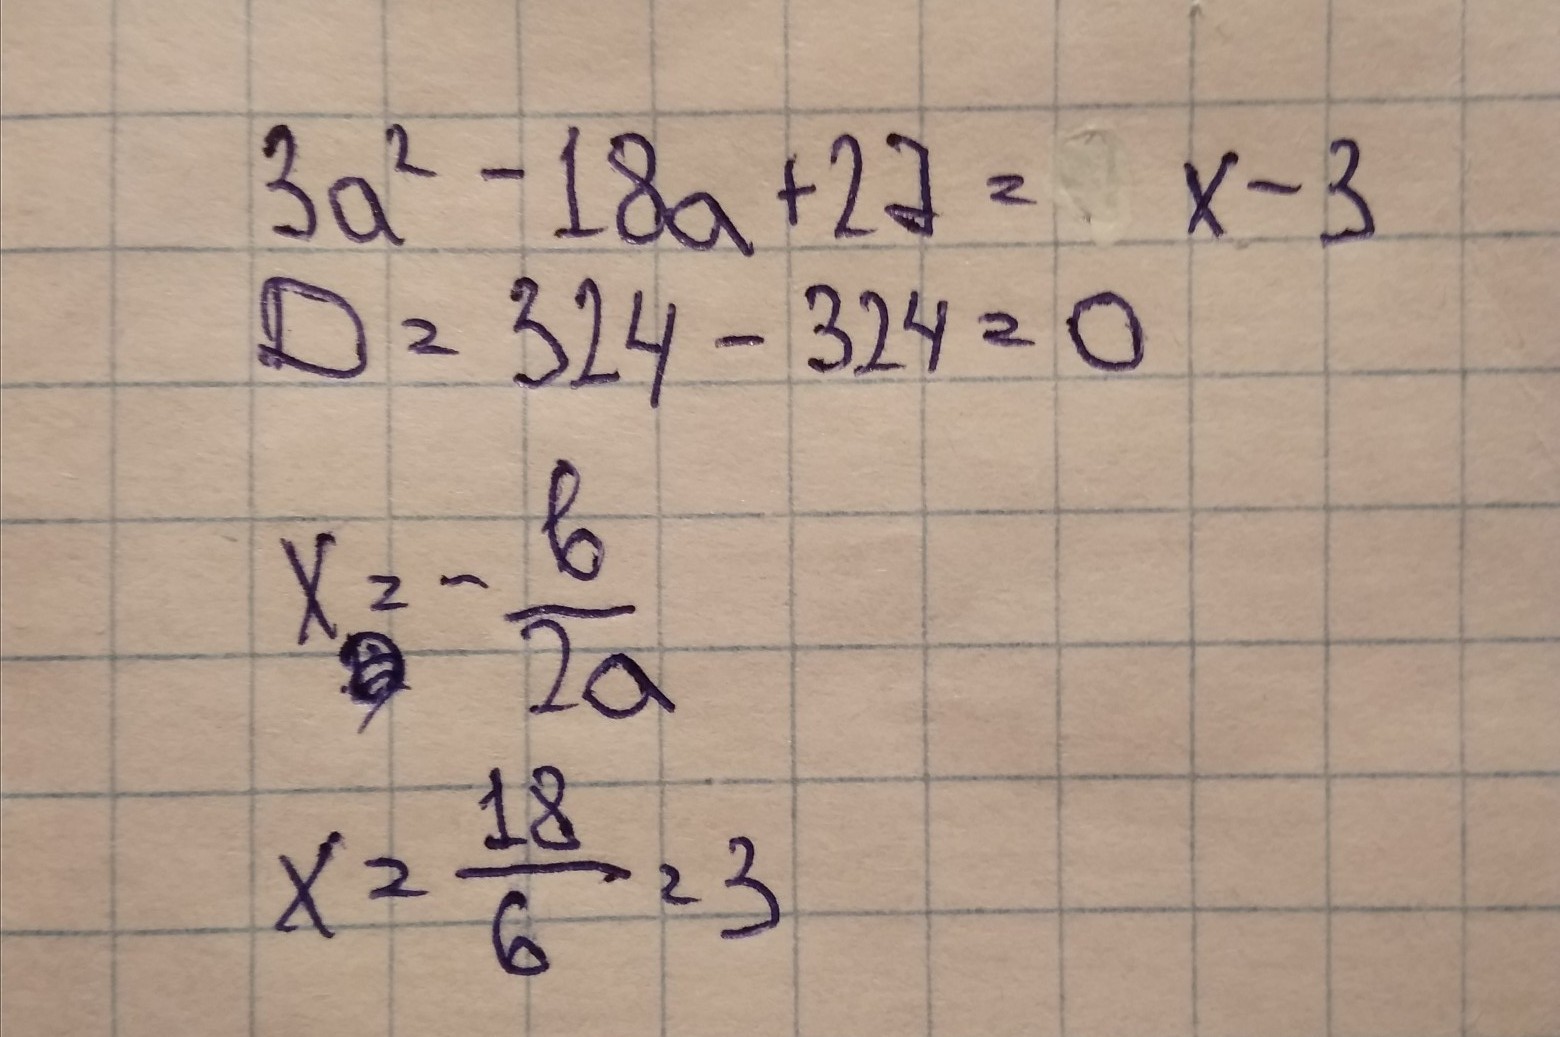 3a² - 18a + 27 = x - 3
D = 324 - 324 = 0
x = - b/2a
x = 18/6 = 3